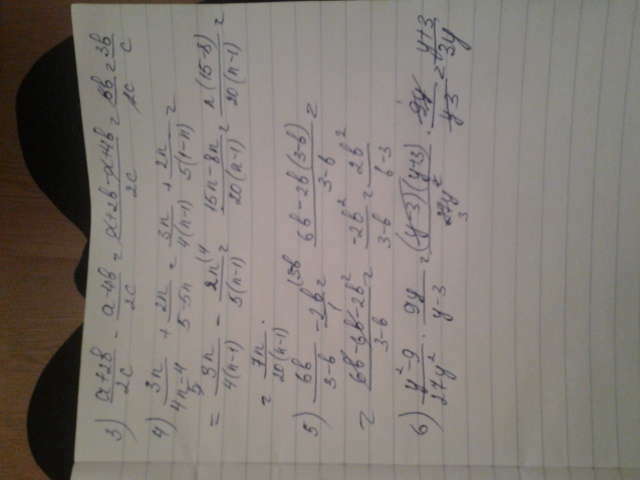 3) (a+2b)/2c - (a-4b)/2c = (a+2b-a+4b)/2c = 6b/2c = 3b/c
4) 3n/(4n-4) + 2n/(5-5n) = 3n/4(n-1) + 2n/5(1-n) =
= 3n/4(n-1) - 2n(4/5(n-1) = (15n-8n)/20(n-1) = n(15-8)/20(n-1) =
= 7n/20(n-1).
5) 6b/(3-b) - 2b(3-b/1 = (6b-2b(3-b))/(3-b) =
= (6b-6b-2b²)/(3-b) = -2b²/(3-b) = 2b²/(b-3)
6) (y²-9)/27y² · 9y/(y-3) = (y-3)(y+3)/27y² 3 · 9y/(y-3) = (y+3)/3y